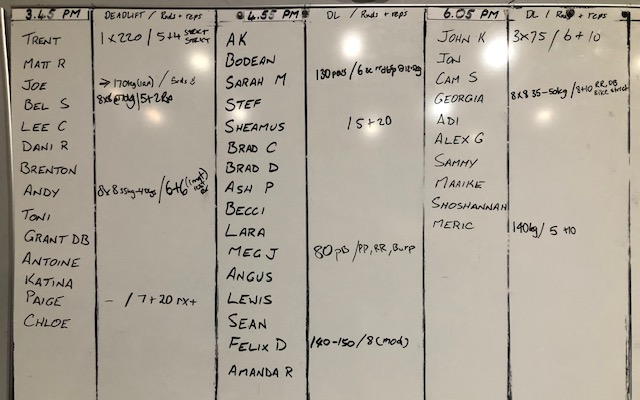 3.45 PM DEADLIFT / Rnds + reps
TRENT 1 x 220 / 5+4 STRICT STRICT
MATT R
JOE → 170kg / 5rds
BEL S 8x8 / 5+2 Rx
LEE C
DANI R
BRENTON
ANDY 8x8 35kg-40kgs / 6+6
TONI
GRANT DB
ANTOINE
KATINA
PAIGE - / 7+20 rx+
CHLOE
4.55 PM DL / Rnds + reps
AK
BODEAN
SARAH M 130 / 6
STEF
SHEAMUS / 5+20
BRAD C
BRAD D
ASH P
BECCI
LARA
MEG J 80 pb / PP, RR, Burp
ANGUS
LEWIS
SEAN
FELIX D 140-150 / 8 (mod)
AMANDA R
6.05 PM DL / Rnds + reps
JOHN K 3x75 / 6+10
JON
CAM S
GEORGIA 8x8 35-50kg / 8+10 RR, DB
ADI
ALEX G
SAMMY
MAAIKE
SHOSHANNAH
MERIC 140kg / 5 +10